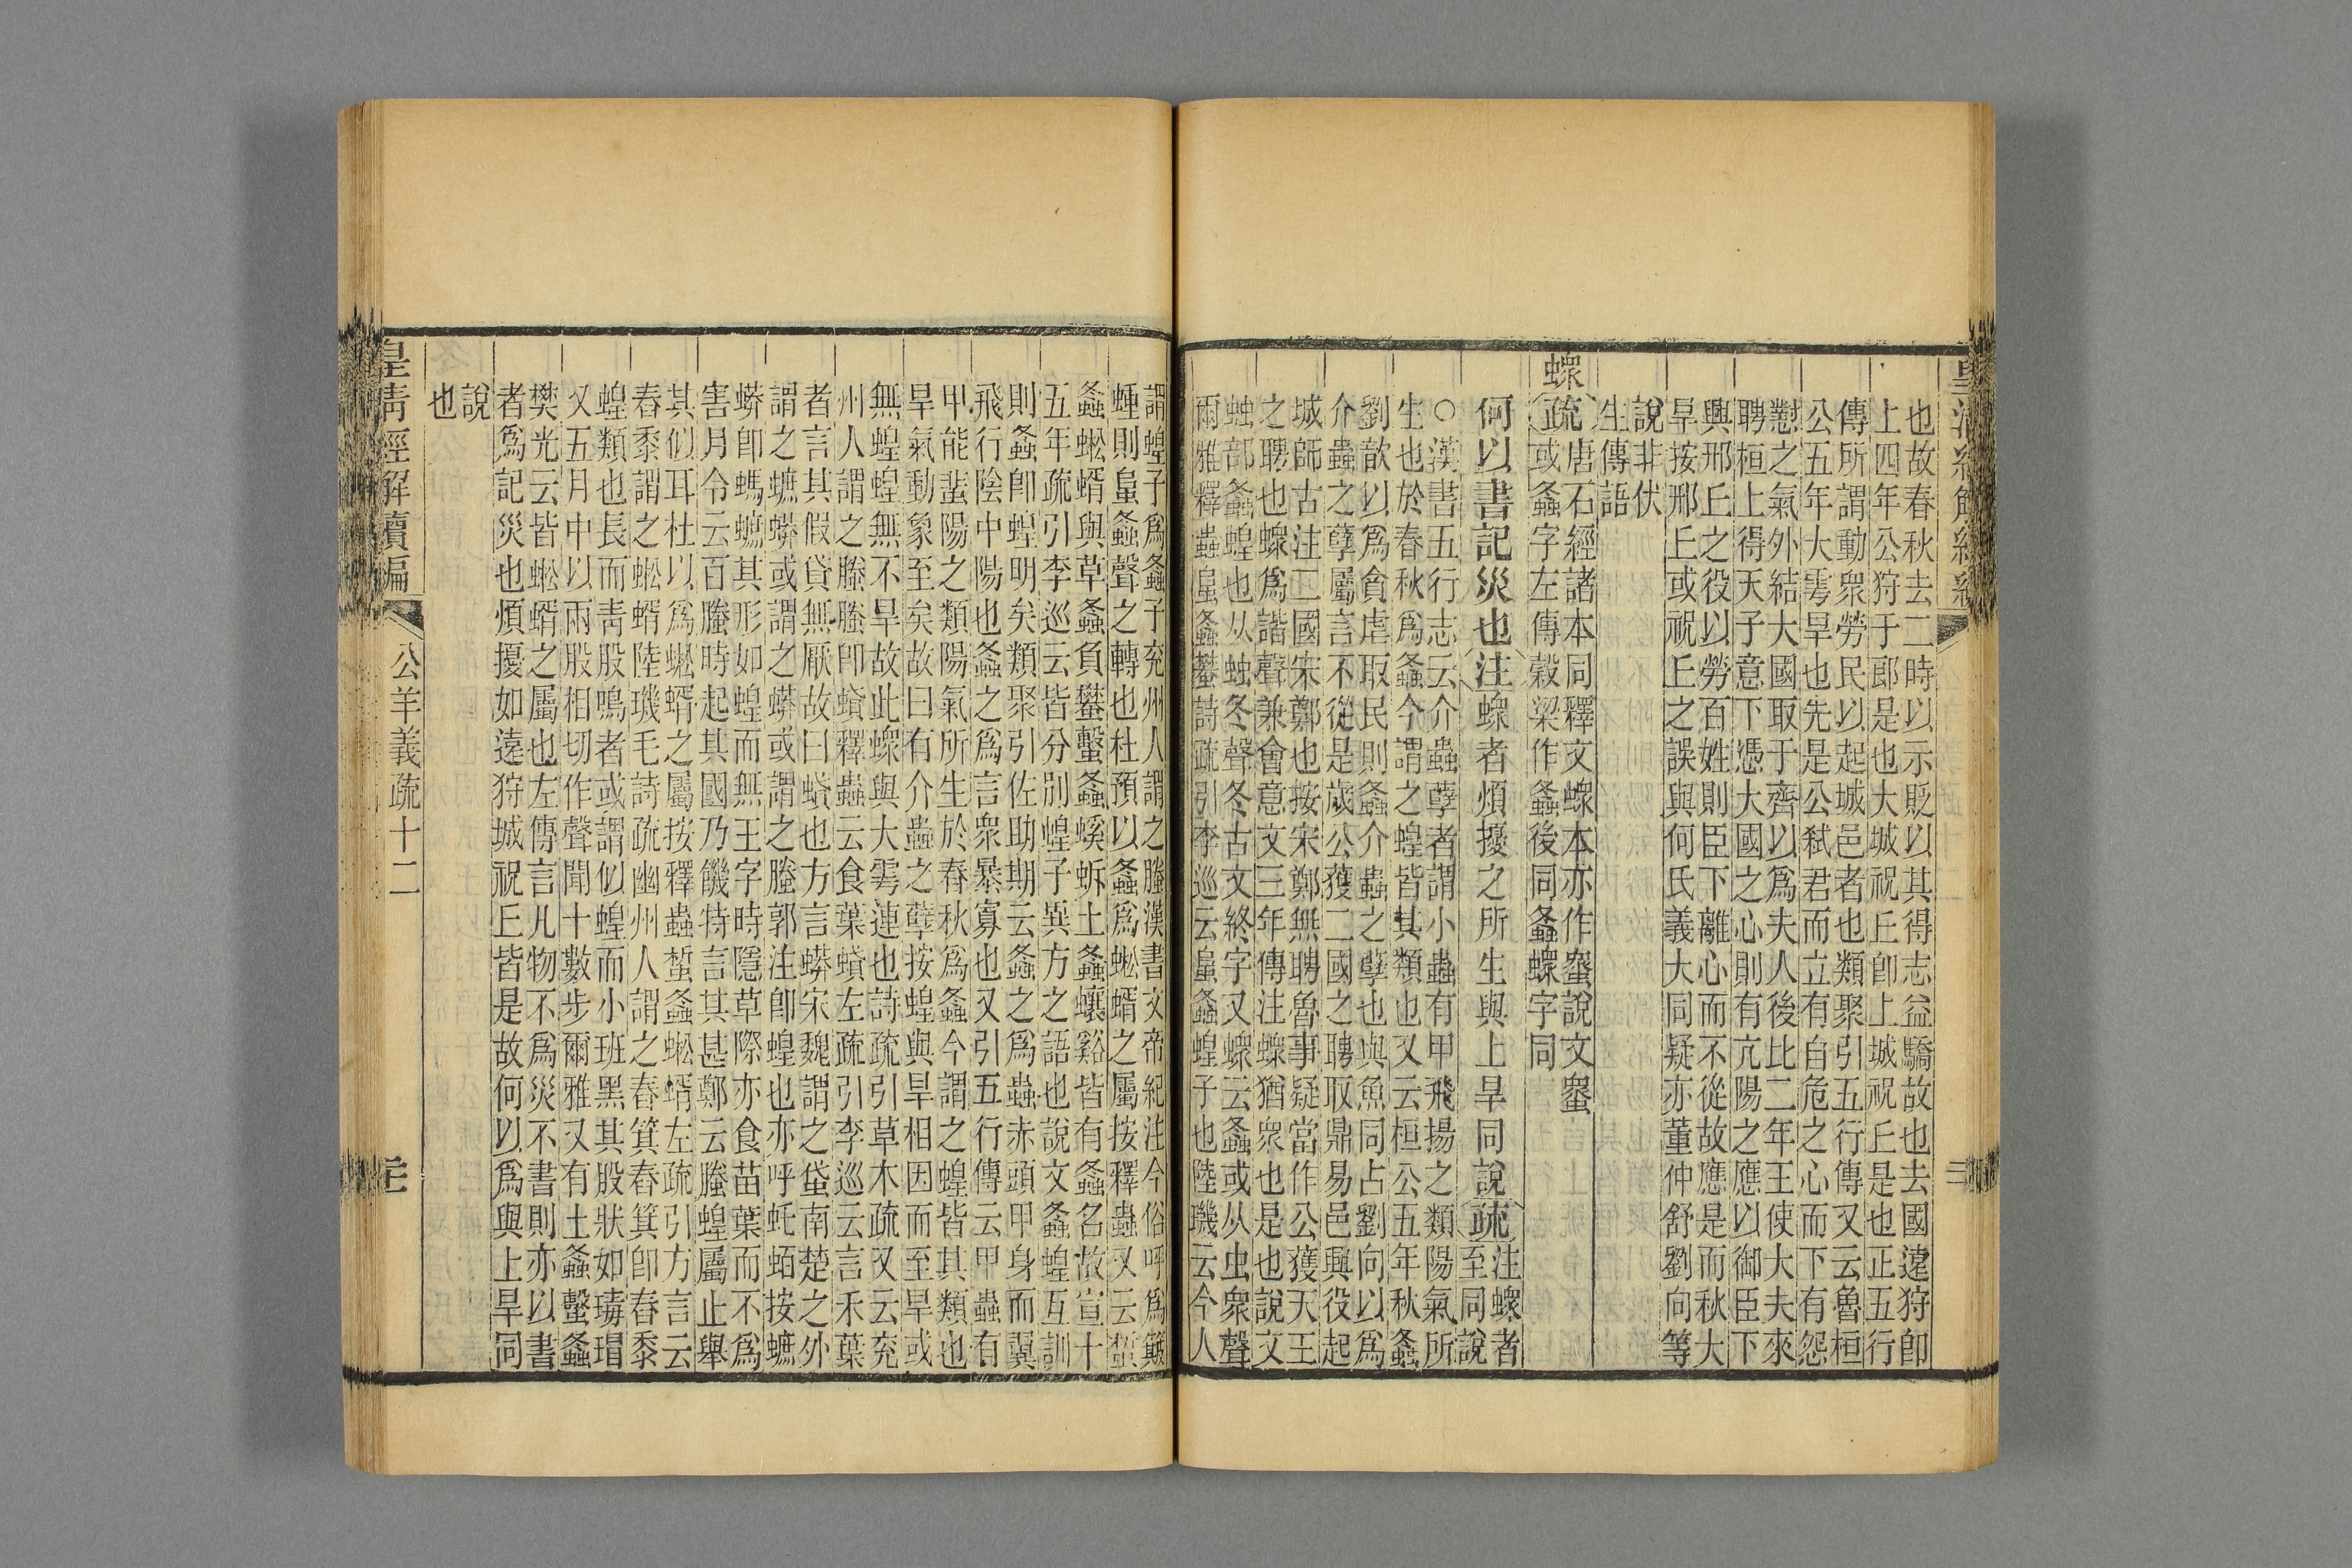 也故春秋去二時以示貶以其得志益驕故也去國遠狩卽
上四年公狩于郎是也大城祝丘卽上城祝丘是也正五行
傳所謂動衆勞民以起城邑者也類聚引五行傳又云魯桓
公五年大雩旱也先是公弑君而立有自危之心而下有怨
懟之氣外結大國取于齊以爲夫人後比二年王使大夫來
聘桓上得天子意下憑大國之心則有亢陽之應以御臣下
興邢丘之役以勞百姓則臣下離心而不從故應是而秋大
旱按邢丘或祝丘之誤與何氏義大同疑亦董仲舒劉向等
說非伏
生傳語
螺
疏唐石經諸本同釋文螺本亦作螽說文螽
或螽字左傳穀梁作螽後同螽螺字同
何以書記災也注螺者煩擾之所生與上旱同說疏注螺者
至同說
○漢書五行志云介蟲孽者謂小蟲有甲飛揚之類陽氣所
生也於春秋爲螽今謂之蝗皆其類也又云桓公五年秋螽
劉歆以爲貪虐取民則螽介蟲之孽也與魚同占劉向以爲
介蟲之孽屬言不從是歲公獲二國之聘取鼎易邑興役起
城師古注二國宋鄭也按宋鄭無聘魯事疑當作公獲天王
之聘也螺爲諧聲兼會意文三年傳注螺猶衆也是也說文
䖵部螽蝗也从䖵冬聲冬古文終字又螺云螽或从虫衆聲
爾雅釋蟲蛗螽蠜詩疏引李巡云蛗螽蝗子也陸璣云今人
謂蝗子爲螽子兗州人謂之螣漢書文帝紀注今俗呼爲簸
蝩則蛗螽聲之轉也杜預以螽爲蚣蝑之屬按釋蟲又云蜤
螽蚣蝑與草螽負蠜蟿螽螇蚸土螽蠰谿皆有螽名故宣十
五年疏引李巡云皆分別蝗子異方之語也說文螽蝗互訓
則螽卽蝗明矣類聚引佐助期云螽之爲蟲赤頭甲身而翼
飛行陰中陽也螽之爲言衆暴寡也又引五行傳云甲蟲有
甲能蜚陽之類陽氣所生於春秋爲螽今謂之蝗皆其類也
旱氣動象至矣故曰有介蟲之孽按蝗與旱相因而至旱或
無蝗蝗無不旱故此螺與大雩連也詩疏引草木疏又云兗
州人謂之螣螣卽蟘釋蟲云食葉蟘左疏引李巡云言禾葉
者言其假貸無厭故曰蟘也方言蟒宋魏謂之蚮南楚之外
謂之蟅蟒或謂之蟒或謂之螣郭注卽蝗也亦呼虴蛨按蟅
蟒卽螞蟅其形如蝗而無王字時隱草際亦食苗葉而不爲
害月令云百螣時起其國乃饑特言其甚鄭云螣蝗屬止舉
其似耳杜以爲蚣蝑之屬按釋蟲蜤螽蚣蝑左疏引方言云
舂黍謂之蚣蝑陸璣毛詩疏幽州人謂之舂箕舂箕卽舂黍
蝗類也長而靑股鳴者或謂似蝗而小班黑其股狀如瑇瑁
又五月中以兩股相切作聲聞十數步爾雅又有土螽蟿螽
樊光云皆蚣蝑之屬也左傳言凡物不爲災不書則亦以書
者爲記災也煩擾如遠狩城祝丘皆是故何以爲與上旱同
說
也
皇淸經解續編
公羊義疏十二